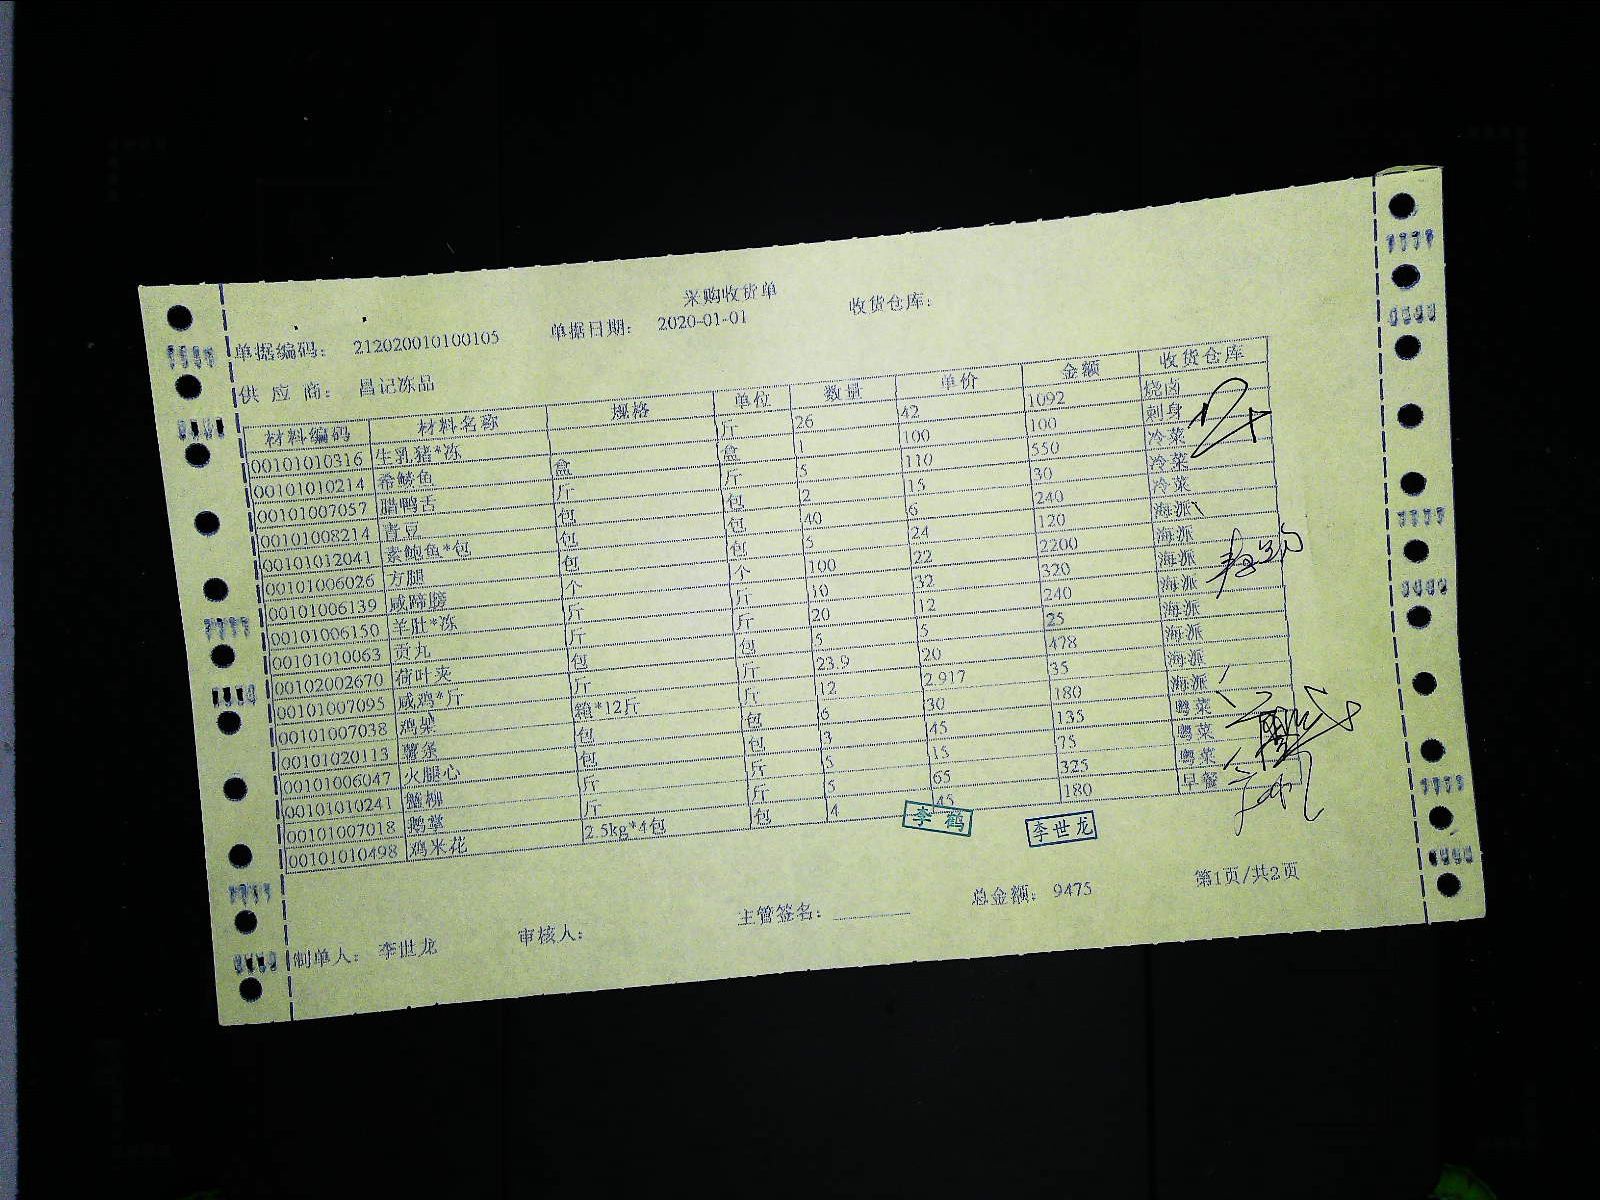 采购收货单
单据编码： 212020010100105 单据日期： 2020-01-01 收货仓库：
供 应 商： 昌记冻品
材料编码 材料名称 规格 单位 数量 单价 金额 收货仓库
00101010316 生乳猪*冻 斤 26 42 1092 烧卤
00101010214 希鲮鱼 盒 盒 1 100 100 刺身
00101007057 腊鸭舌 斤 斤 5 110 550 冷菜
00101008214 青豆 包 包 2 15 30 冷菜
00101012041 素鲍鱼*包 包 包 40 6 240 冷菜
00101006026 方腿 包 包 5 24 120 海派
00101006139 咸蹄膀 个 个 100 22 2200 海派
00101006150 羊肚*冻 斤 斤 10 32 320 海派
00101010063 贡丸 斤 斤 20 12 240 海派
00102002670 荷叶夹 包 包 5 5 25 海派
00101007095 咸鸡*斤 斤 斤 23.9 20 478 海派
00101007038 鸡架 箱*12斤 斤 12 2.917 35 海派
00101020113 薯条 包 包 6 30 180 海派
00101006047 火腿心 包 包 3 45 135 粤菜
00101010241 斤 斤 5 15 75 粤菜
00101007018 鹅掌 斤 斤 5 65 325 粤菜
00101010498 鸡米花 2.5kg*4包 包 4 45 180 早餐
李鹤 李世龙
制单人： 李世龙 审核人： 主管签名： 总金额： 9475 第1页/共2页